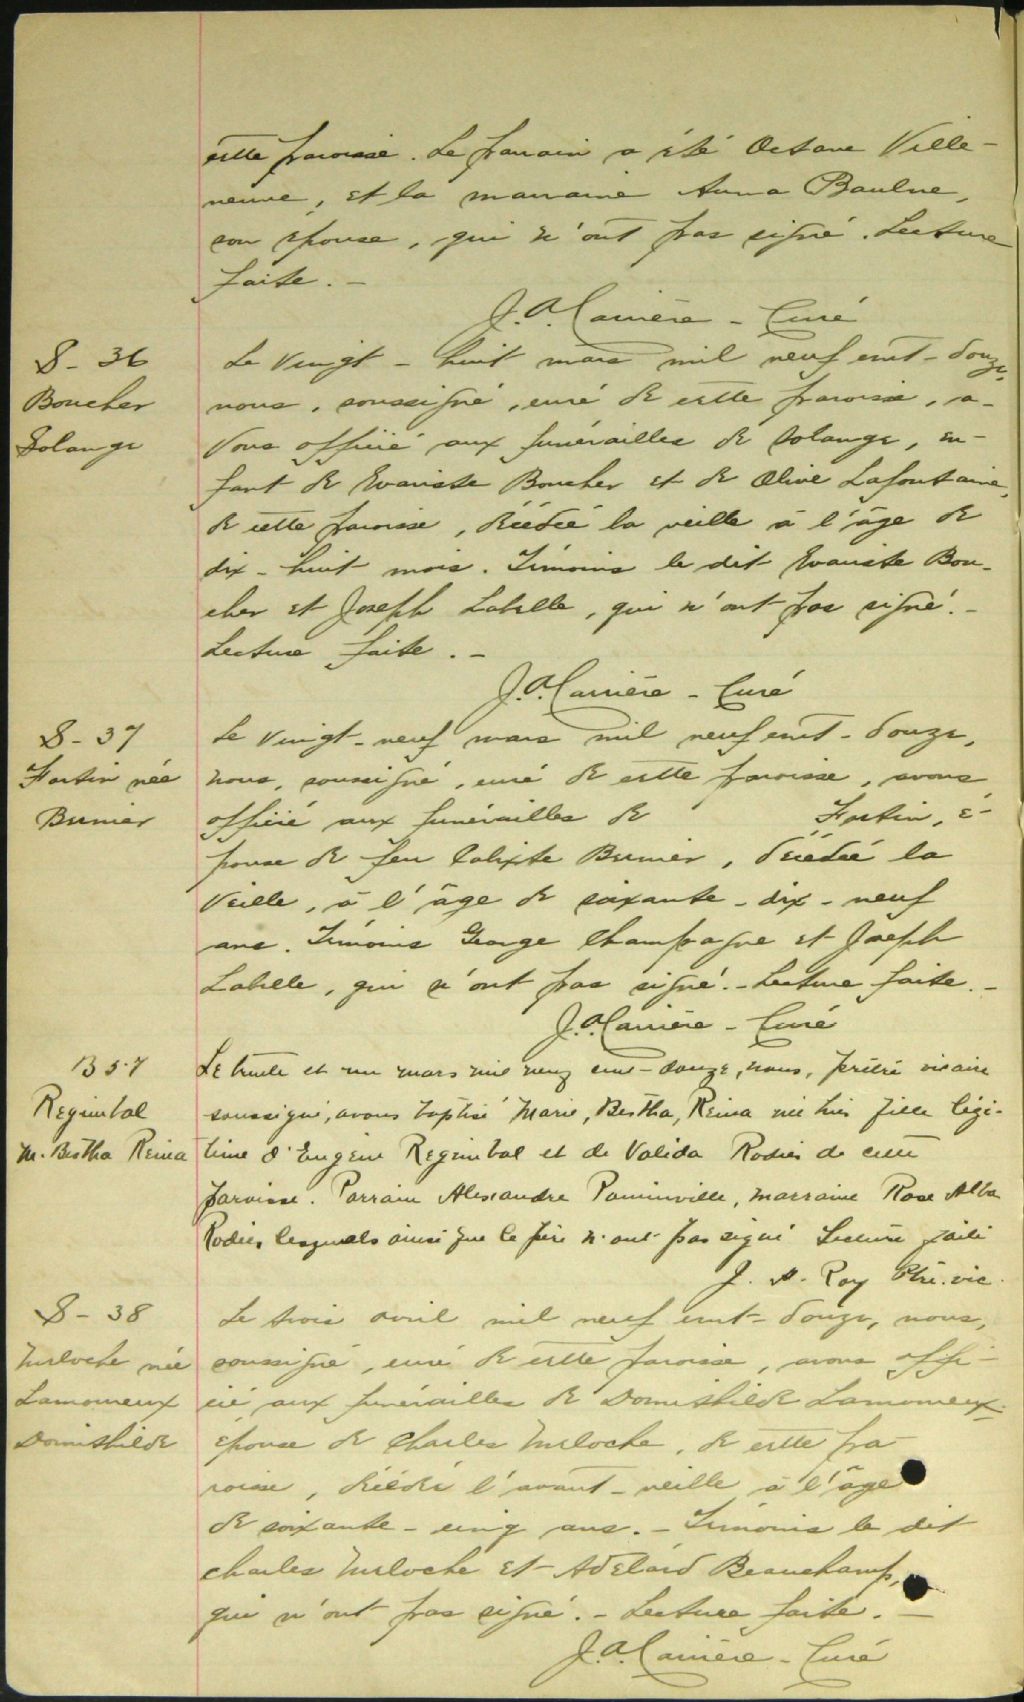 cette paroisse. Le parrain a été Octave Ville-
neuve, et la marraine Anna Baulne,
son épouse, qui n'ont pas signé. Lecture
faite. -
J. A. Carrière - Curé
S - 36
Boucher
Solange
Le vingt - huit mars mil neuf cent - douze,
nous, soussigné, curé de cette paroisse, a-
vons officié aux funérailles de Solange, en-
fant de Evariste Boucher et de Olive Lafontaine,
de cette paroisse, décédée la veille à l'âge de
dix - huit mois. Témoins le dit Evariste Bou-
cher et Joseph Labelle, qui n'ont pas signé. -
Lecture faite. -
J. A. Carrière - Curé
S - 37
Fortin née
Bernier
Le vingt - neuf mars mil neuf cent - douze,
nous, soussigné, curé de cette paroisse, avons
officié aux funérailles de Fortin, é-
pouse de feu Calixte Bernier, décédée la
veille, à l'âge de soixante - dix - neuf
ans. Témoins George Champagne et Joseph
Labelle, qui n'ont pas signé. - Lecture faite. -
J. A. Carrière - Curé
B 57
Regimbal
M. Bertha Reina
Le trente et un mars mil neuf cent - douze, nous, prêtre vicaire
soussigné, avons baptisé Marie, Bertha, Reina née hier fille légi-
time d'Eugène Regimbal et de Valida Rodier de cette
paroisse. Parrain Alexandre Paminville, marraine Rose Alba
Rodier lesquels ainsi que le père n'ont pas signé Lecture faite
J. A. Roy Ptre. vic.
S - 38
Turloche née
Lamoureux
Domithilde
Le trois avril mil neuf cent - douze, nous,
soussigné, curé de cette paroisse, avons offi-
cié aux funérailles de Domithilde Lamoureux,
épouse de Charles Turloche, de cette pa-
roisse, décédée l'avant - veille à l'âge
de soixante - cinq ans. - Témoins le dit
Charles Turloche et Adélard Beauchamp,
qui n'ont pas signé. - Lecture faite. -
J. A. Carrière - Curé